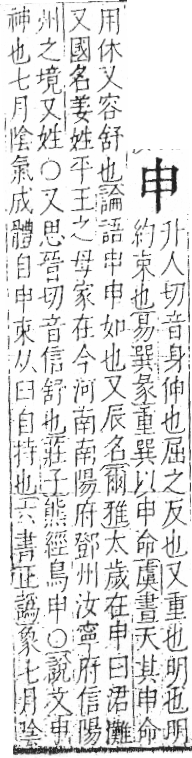 申
升人切音身伸也屈之反也又重也明也
約束也易巽彖重巽以申命虞書天其申命
用休又容舒也論語申申如也又辰名爾雅太歲在申曰涒灘
又國名姜姓平王之母家在今河南南陽府鄧州汝寧府信陽
州之境又姓○又思晉切音信舒也莊子熊經鳥申○說文申
神也七月陰氣成體自申束从𦥑自持也六書正譌象七月陰